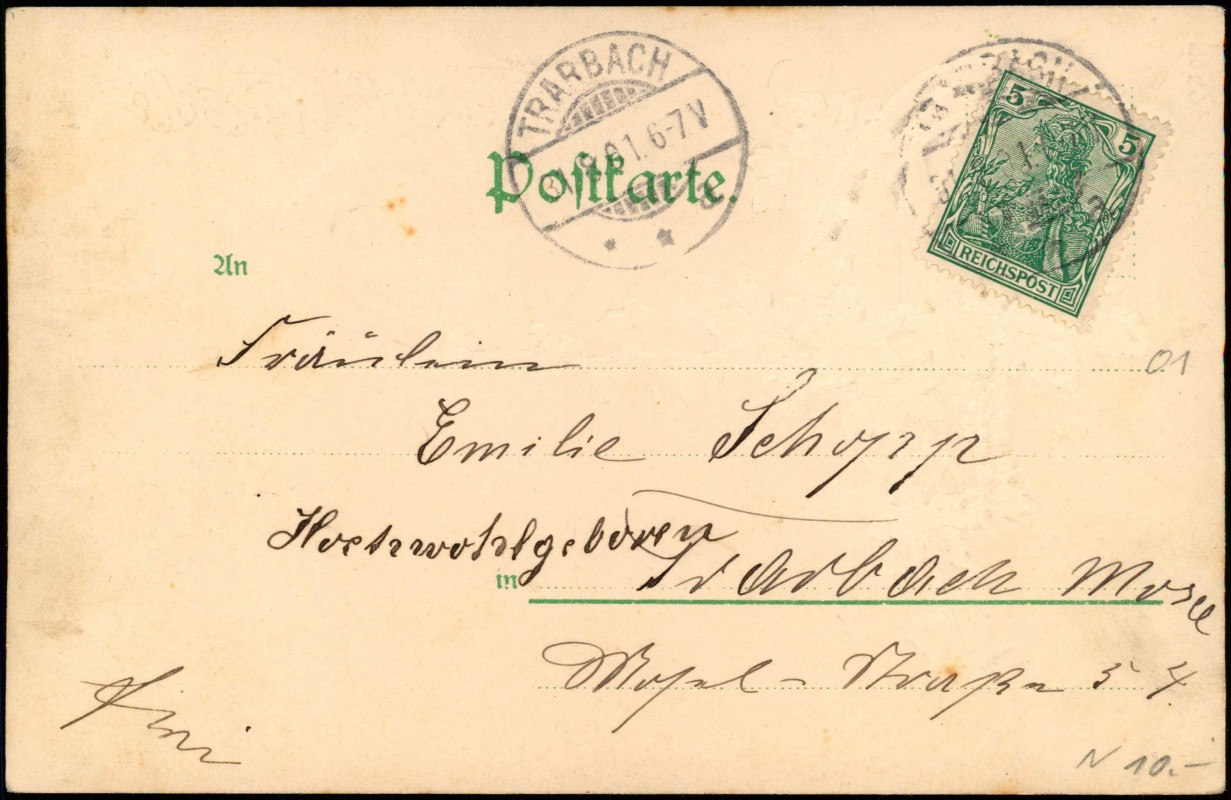 TRARBACH
9.01.6-7V
Postkarte.
5 5
REICHSPOST
An
Fräulein
01
Emilie Schopp
Hochwohlgeboren
in Trarbach Mosel
Mosel-Straße 54
N 10.-